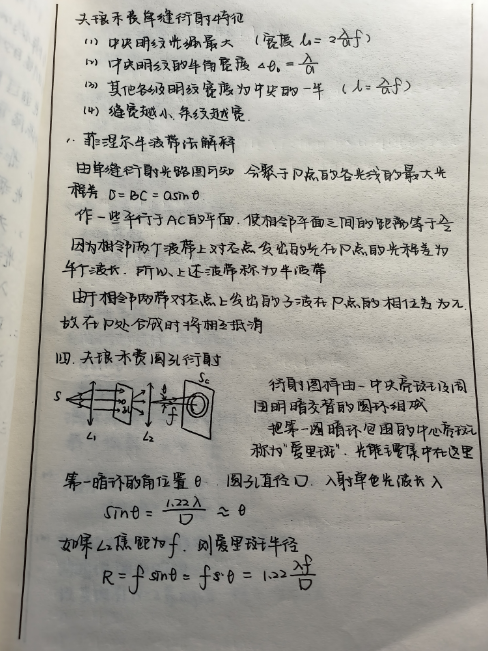 夫琅禾费单缝衍射特征
(1) 中央明纹光强最大 (宽度 l₀ = 2λ/a f)
(2) 中央明纹的半角宽度 Δθ₀ = λ/a
(3) 其他各级明纹宽度为中央的一半 (l = λ/a f)
(4) 缝宽越小、条纹越宽.
菲涅尔半波带法解释
由单缝衍射光路图可知 会聚于P点的各光线的最大光
程差 δ = BC = asinθ
作一些平行于AC的平面,使相邻平面之间的距离等于λ/2
因为相邻两个波带上对应点发出的光在P点的光程差为
半个波长,所以上述波带称为半波带
由于相邻两带对应点上发出的子波在P点的相位差为π.
故在P处合成时将相互抵消
四. 夫琅禾费圆孔衍射
S L₁ L₂ θ f S_c
衍射图样由一中央亮斑及周
围明暗交替的圆环组成
把第一圈暗环包围的中心亮斑
称为"爱里斑".光能主要集中在这里
第一暗环的角位置θ 圆孔直径D. 入射单色光波长λ
sinθ = 1.22λ/D ≈ θ
如果L₂焦距为f.则爱里斑半径
R = f sinθ = f·θ = 1.22 λf/D